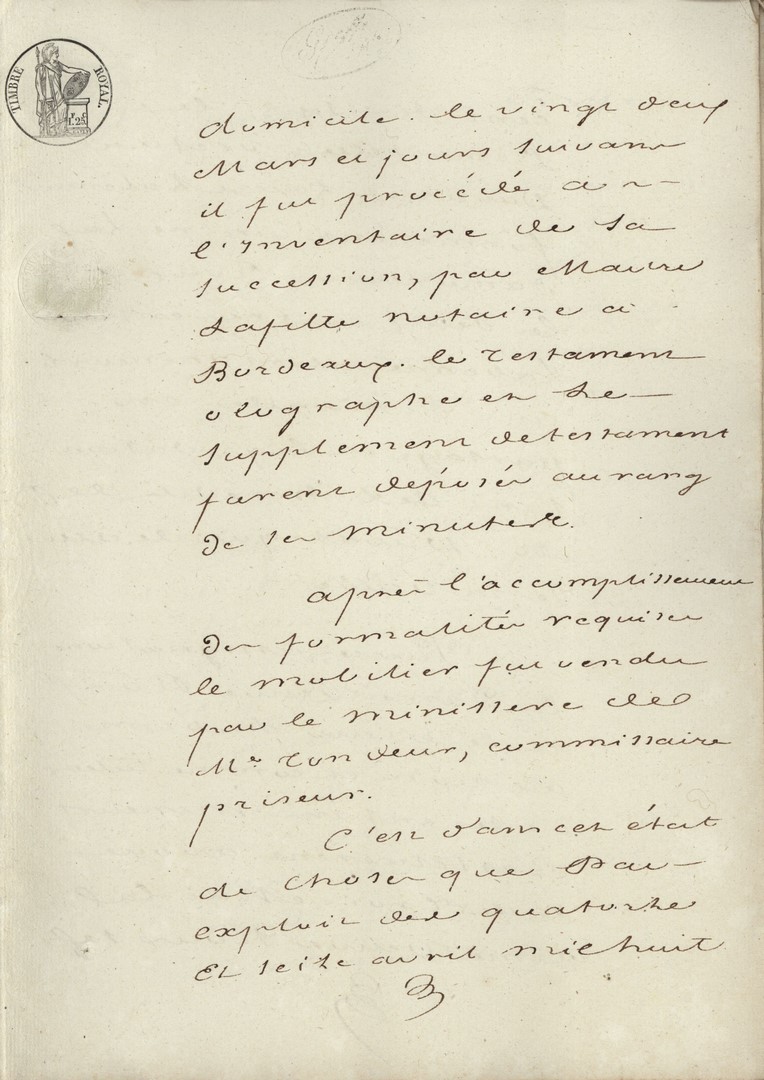 TIMBRE ROYAL.
1 F. 25 C.
domicile. le vingt deux
Mars et jours suivans
il fut procédé a
l'inventaire de sa
succession, par Maitre
Lafitte notaire a
Bordeaux. le testament
olographe et le
supplement de testament
furent déposés au rang
de ses minutes.
après l'accomplissement
des formalités requises
le mobilier fut vendu
par le ministere de
Me. Tondeur, commissaire
priseur.
C'est dans cet état
de choses que Par
exploit des quatorze
Et seize avril mil huit